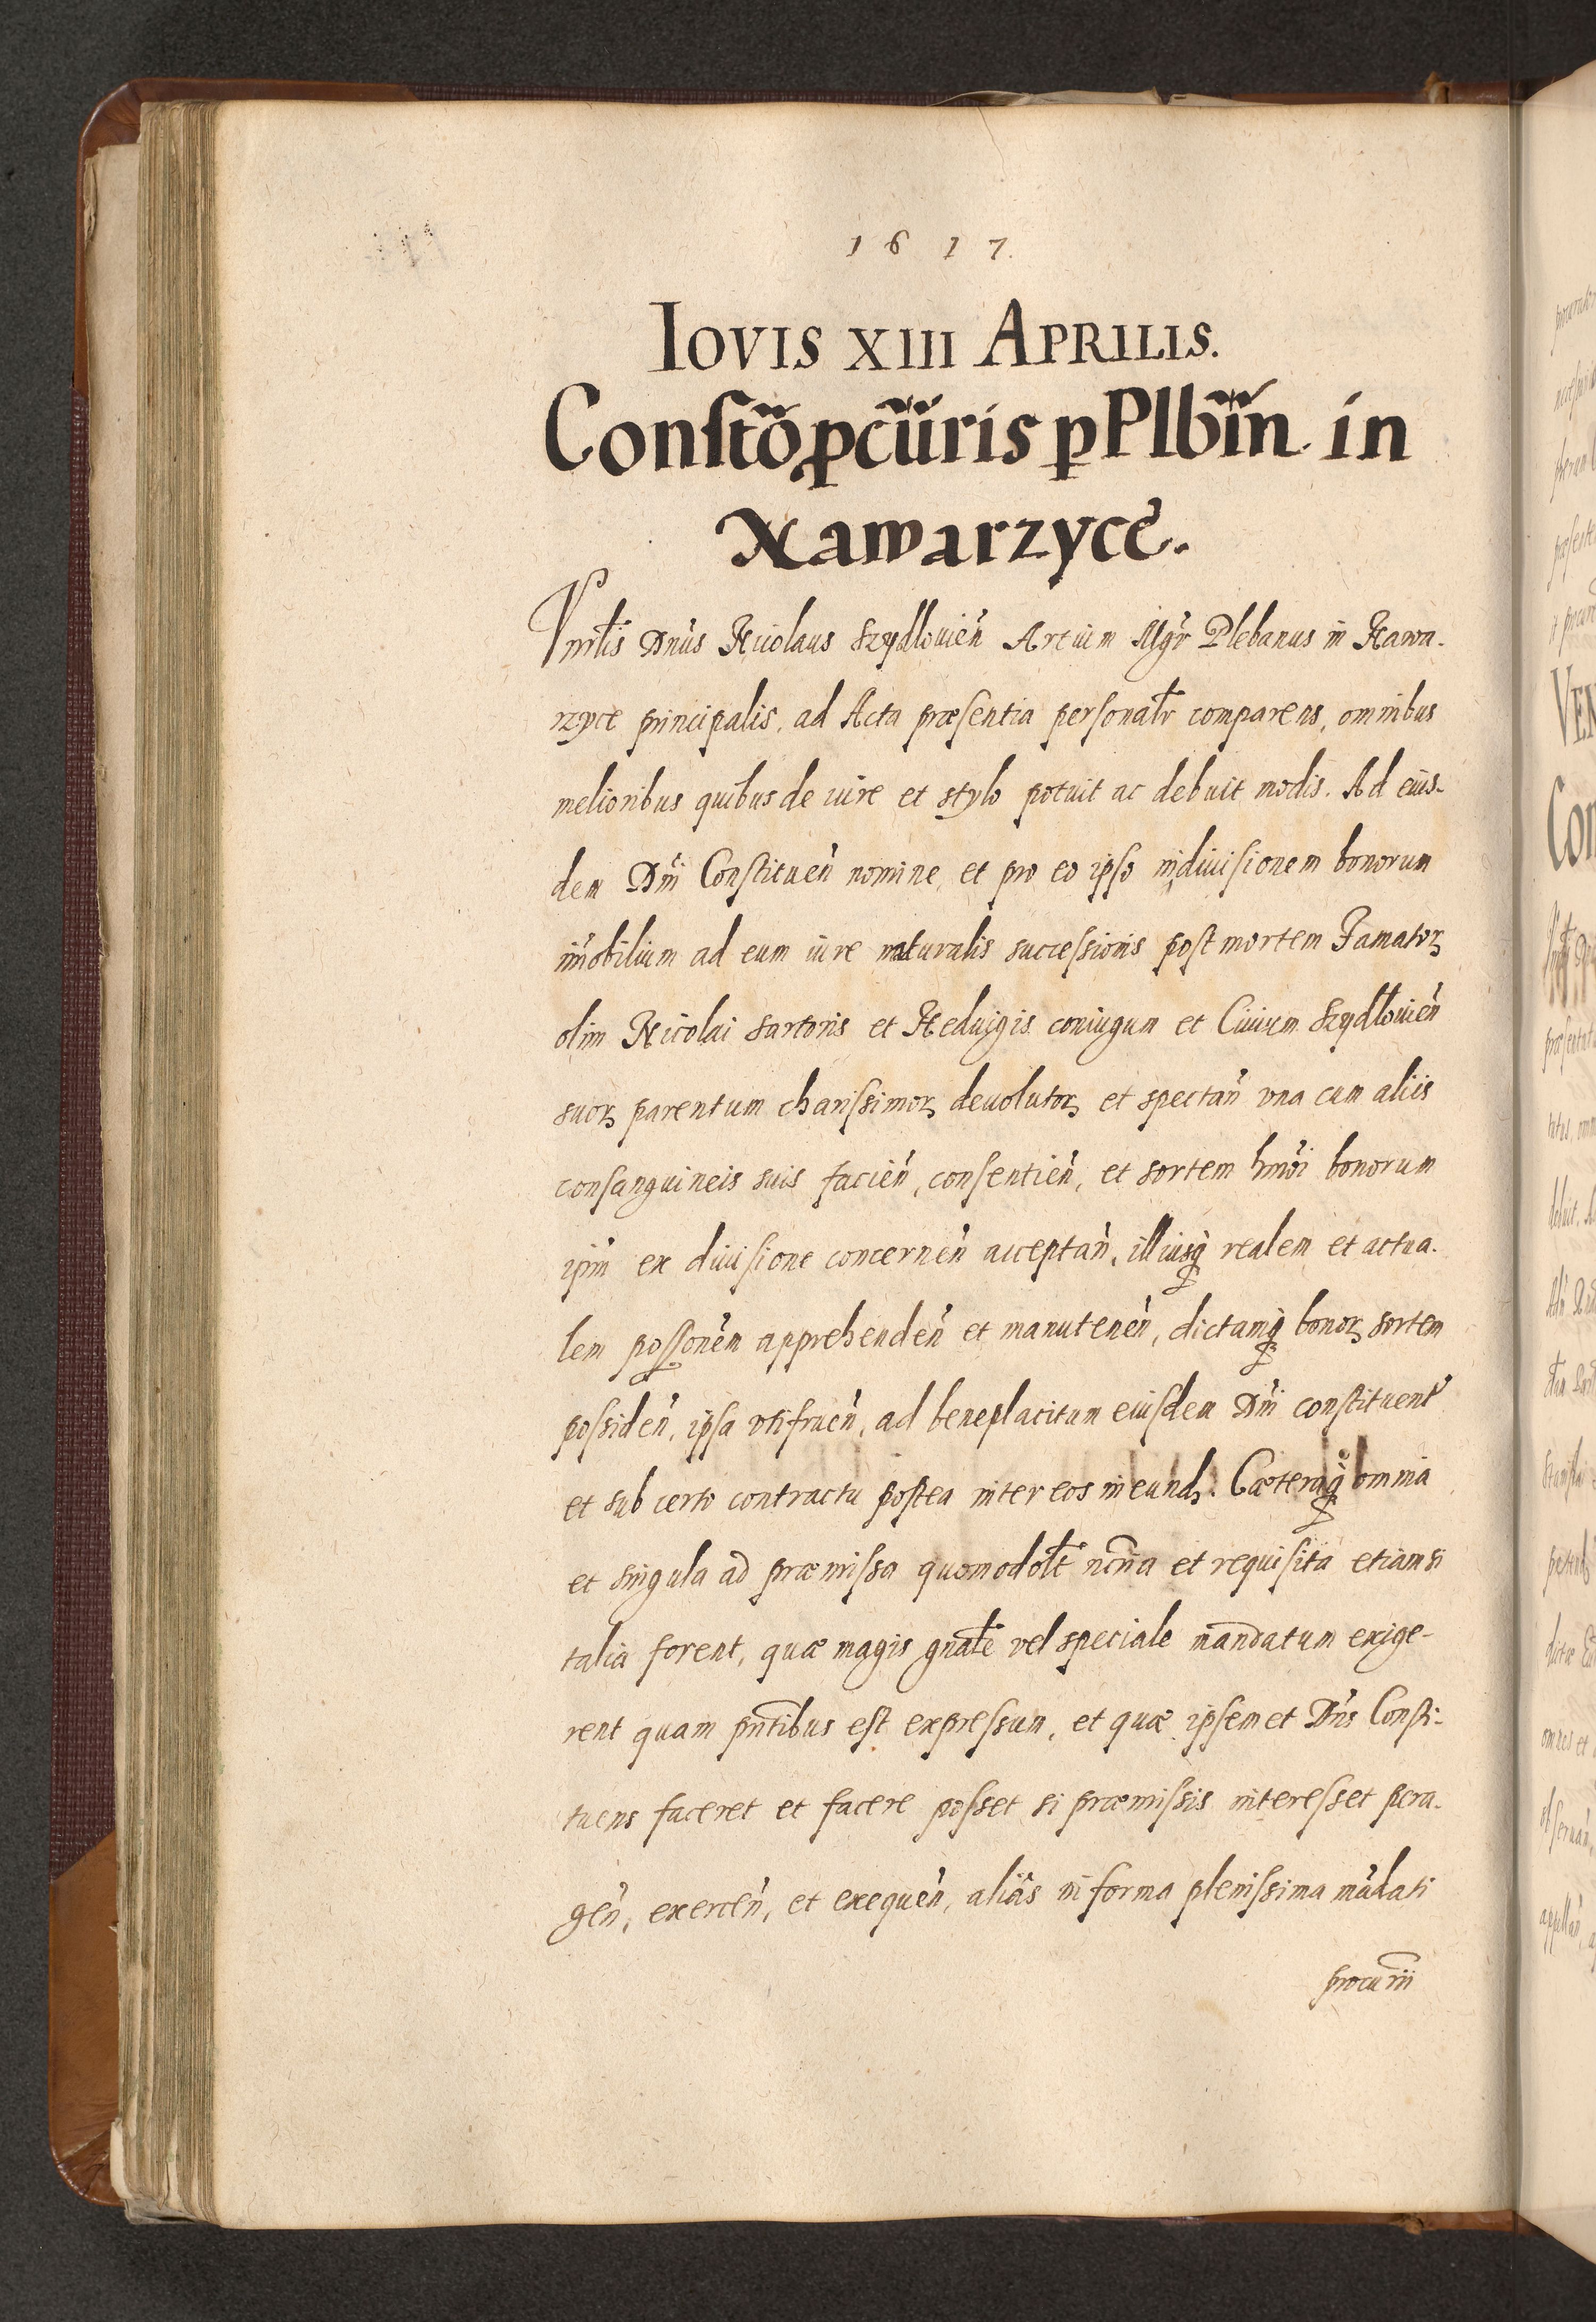 1617.
IOVIS XIII APRILIS.
Constõ p̱cũris p̱ Plbm̃ in
Xawarzyce.
Vnrlis Dnus Nicolaus Szydlouień Artium Mgr Plebanus in Xawa-
rzyce principalis, ad Acta præsentia personalr comparens, omnibus
melioribus quibus de iure et stylo potuit ac debuit modis. Ad eius-
dem Dni Constituen̄ nomine, et pro eo ipso in diuisionem bonorum
im̄obilium ad eum iure naturalis successionis post mortem Famatorꝫ
olim Nicolai Sartoris et Heduigis coniugum et Ciuium Szydłouień
suorꝫ parentum charissimorꝫ deuolutorꝫ et spectan̄ vna cum aliis
consanguineis suis facień, consentień, et sortem hm̄oi bonorum
ipm̄ ex diuisione concerneń acceptań, illiusq̃ realem et actua-
lem possonem̄ apprehendeń et manuteneń, dictamq̃ bonorꝫ sortem
possideń, ipsa vtifrueń, ad beneplacitum eiusdem Dni constituent̄
et sub certo contractu postea inter eos ineundꝫ. Cæteraq̃ omnia
et singula ad præmissa quomodolt ncn̄a et requisita etiam si
talia forent, quæ magis gnale vel speciale mandatum exige-
rent quam pn̄tibus est expressum, et quæ ipsemet Dns Consti-
tuens faceret et facere posset si præmissis interesset pera-
geń, exerceń, et exequeń, aliâs in forma plenissima mādati
procurii